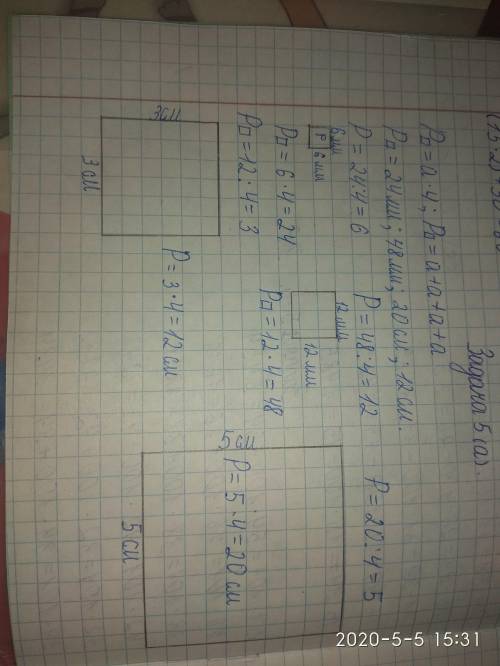 Задача 5 (а).
P□ = a · 4; P□ = a + a + a + a
P□ = 24 мм; 48 мм; 20 см; 12 см.
P = 24 : 4 = 6
P = 48 : 4 = 12
P = 20 : 4 = 5
6 мм
P
6 мм
12 мм
12 мм
P□ = 6 · 4 = 24
P□ = 12 · 4 = 48
P□ = 12 : 4 = 3
3 см
3 см
P = 3 · 4 = 12 см
5 см
P = 5 · 4 = 20 см
5 см
2020-5-5 15:31